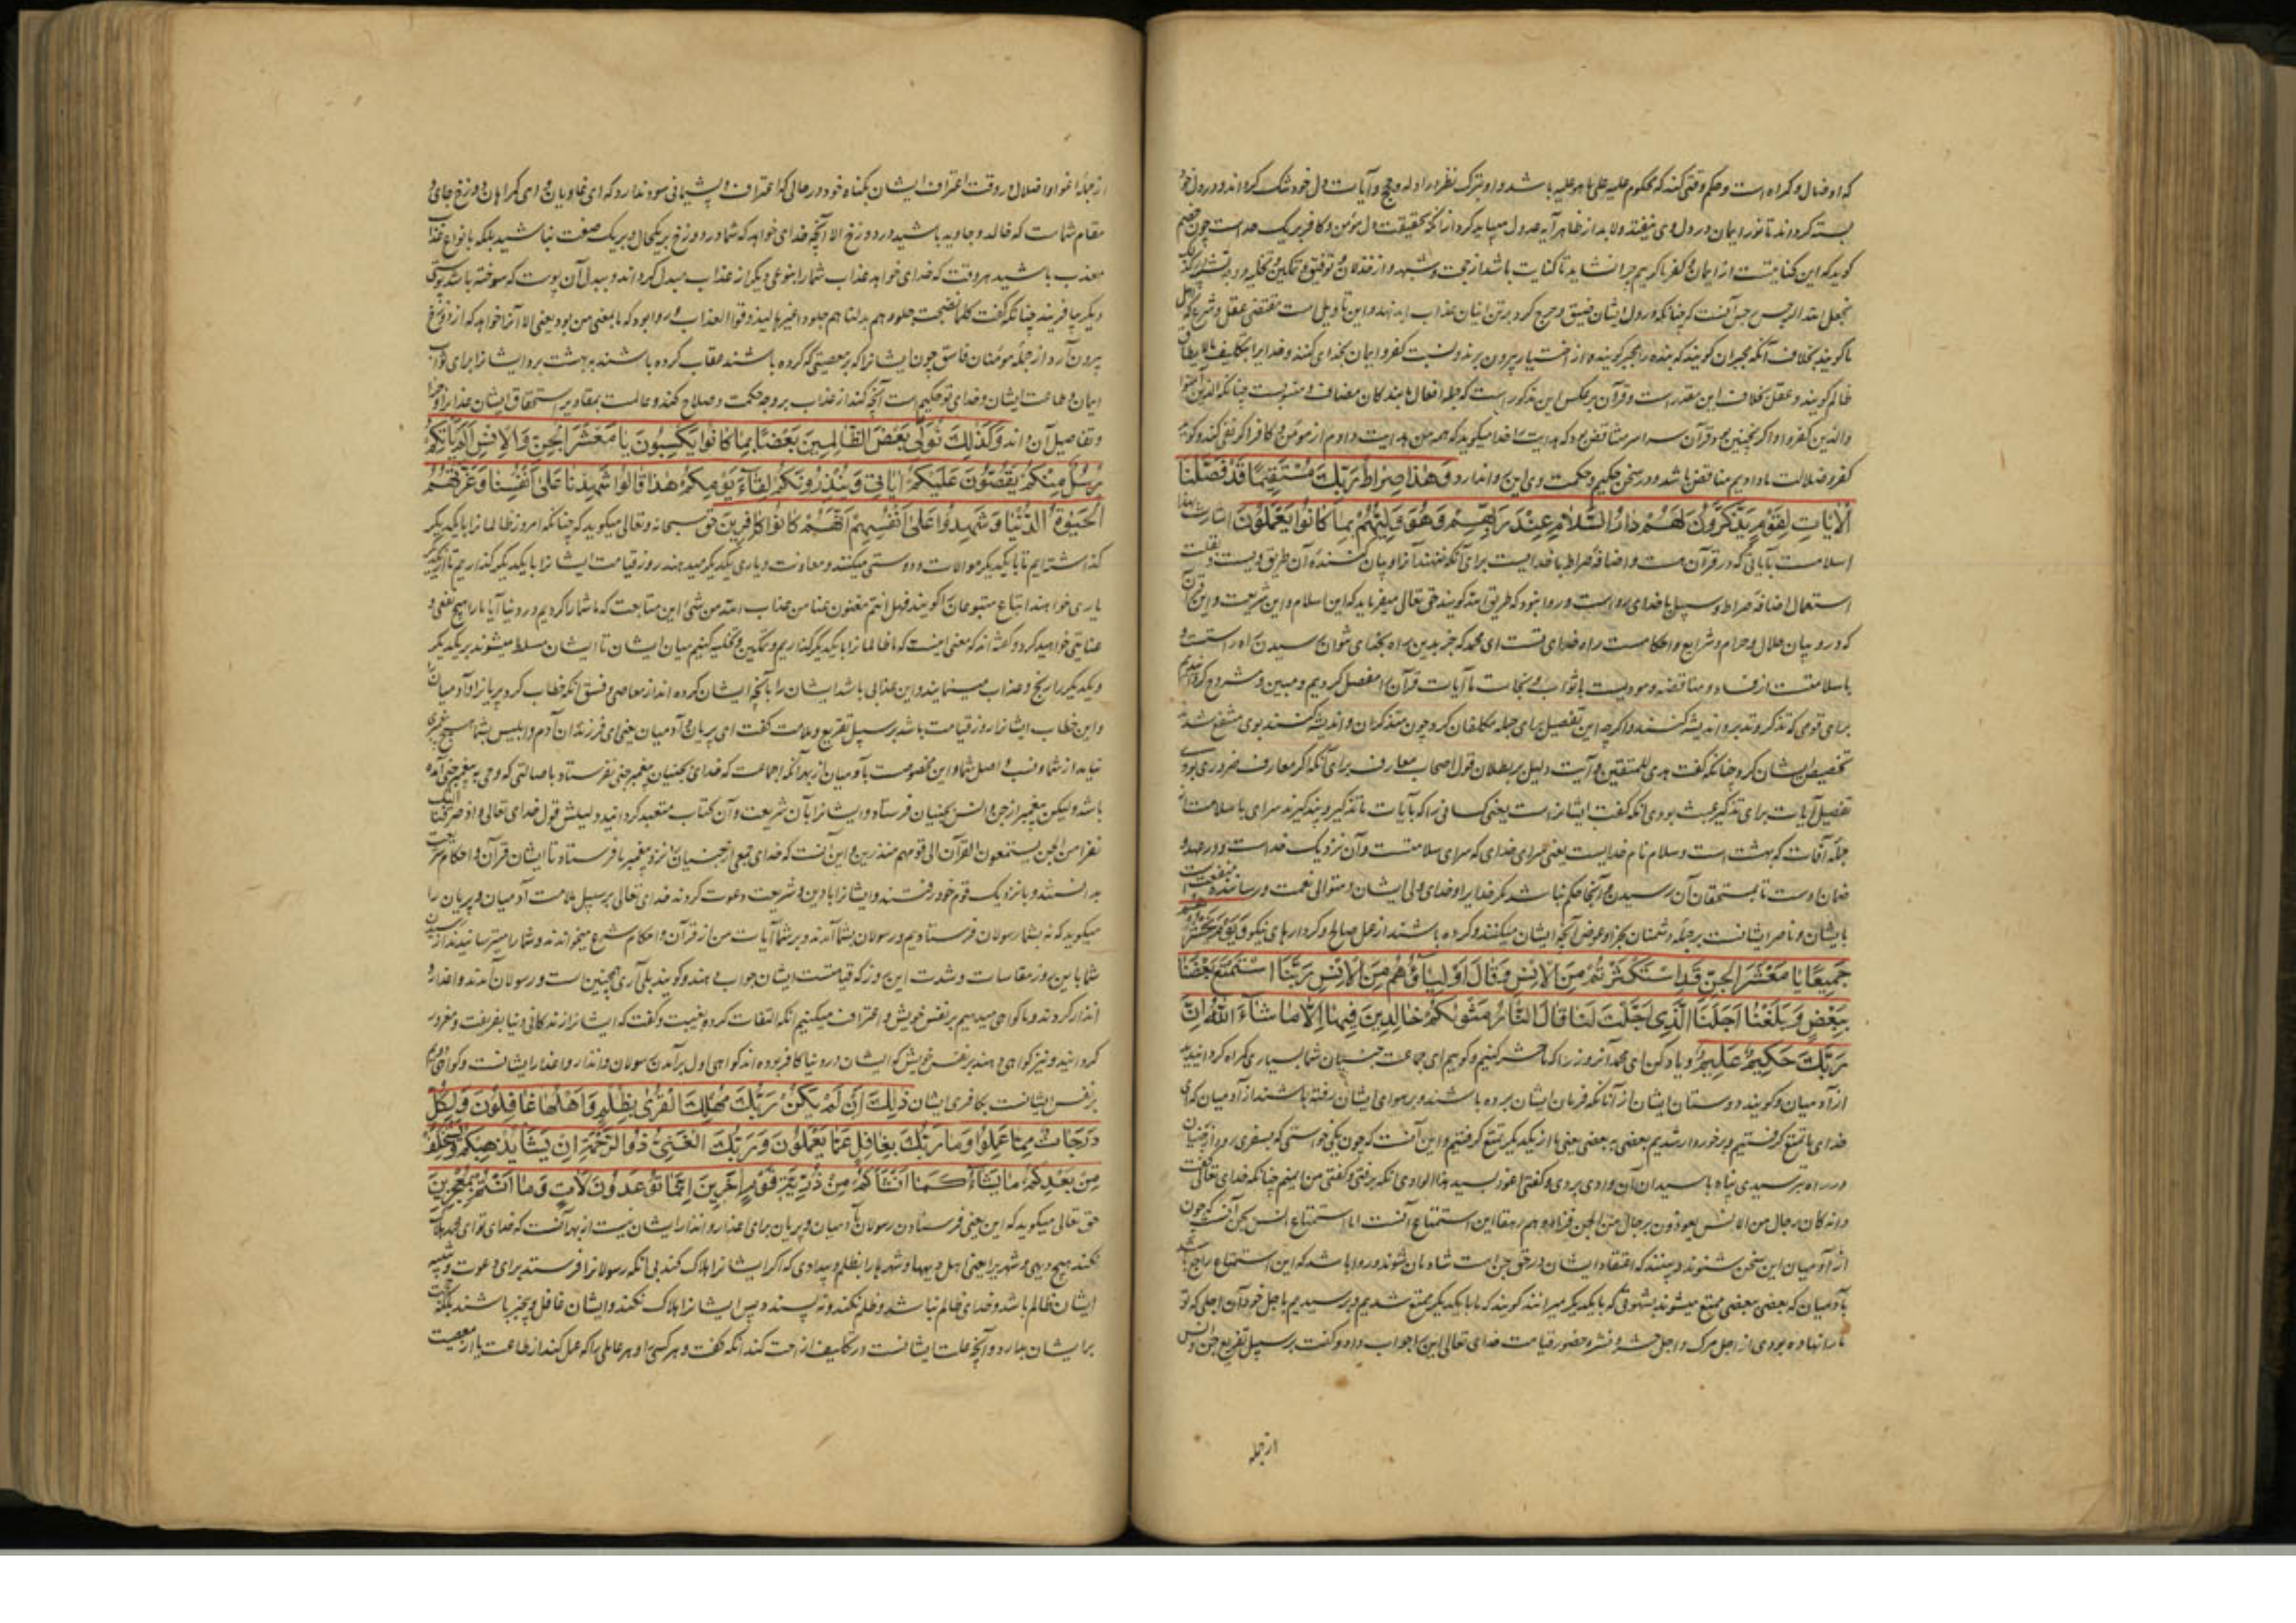 که او ضال و گمراه است و حکم وقتی کنند که محکوم علیه علی ما هو علیه باشد و او بترک نظر در ادله و حجج و آیات دل خود تنگ کرده اند و در دل خود
بسته کرده اند تا نور ایمان در دل وی نیفتد ولابد از ظاهر آیه عدول میباید کرد از آنکه بحقیقت دل مؤمن و کافر بر یک حد است چون خصم
گوید که این کنایتست از ایمان و کفر ما گوییم چرا نشاید تا کنایت باشد از حجت و شبهه و از خذلان و توفیق و تمکین و تخلیه
یجعل الله الرجس جنس آنست که چنانکه در دل ایشان ضیق و حرج کرد برین اینان عذاب نهد و این تأویل است مقتضی عقل و شرع
ما گویند بخلاف آنکه مجبران گویند که بنده را مجبر گویند و از اختیار بیرون برند و نسبت کفر و ایمان بخدای کنند و خدا را بتکلیف ما لا یطاق
ظالم گویند و عقل بخلاف این مقدر است و قرآن بر عکس این مذکور است که جمله افعال با بندگان مضاف و منسوبست چنانکه الذین آمنوا
والذین کفروا و اگر نچنین بود قرآن سراسر متناقض بود که هدایت خدا میگوید که همه من هدایت دادم از مؤمن و کافر اگر نفی کند و گوید
کفر و ضلالت ما دادیم متناقض باشد و در سخن حکیم و حکمت وی این روا ندارد وَهٰذا صِراطُ رَبِّكَ مُسْتَقيمًا قَدْ فَصَّلْنَا
الْآيَاتِ لِقَوْمٍ يَذَّكَّرُونَ لَهُمْ دَارُ السَّلَامِ عِنْدَ رَبِّهِمْ وَهُوَ وَلِيُّهُمْ بِمَا كَانُوا يَعْمَلُونَ اشارت بهذا
اسلامست با آیاتی که در قرآن است و اضافه صراط با خدایست برای آنکه نهنده آنرا و بیان کننده آن طریق ویست
استعمال اضافه صراط و سبیل با خدای روا است و روا نبود که طریق الله گویند حق تعالی میفرماید که این اسلام و این شریعت و این قرآن
که در و بیان حلال و حرام و شرایع و احکامست راه خدای تست ای محمد که جز بدین راه بخدای نتوان رسیدن راه راست
با سلامت از فساد و مناقضه و مودیست با ثواب و نجات ما آیات قرآن را مفصل کردیم و مبین و مشروح گردانیدیم
برای قومی که تذکر و تدبر و اندیشه کنند و اگر چه این تفصیل برای جمله مکلفان کرد چون متذکران و اندیشه کنند بوی منتفع شدند
تخصیص ایشان کرد چنانکه گفت هدی للمتقین و آیت دلیل بر بطلان قول اصحاب معارف برای آنکه اگر معارف ضروری بودی
تفصیل آیات برای تذکیر عبث بودی آنکه گفت ایشانراست یعنی کسانی را که بآیات ما تذکیر و پند گیرند سرای با سلامت از
جمله آفات که بهشت است و سلام نام خدایست یعنی سرای خدای که سرای سلامتست و آن نزدیک خداست و در عهده و
ضمان اوست تا بمستحقان آن رسیدن و آنجا حکم نباشد مگر خدایرا و خدای ولی ایشان و متوالی نعمت و رساننده منفعت
بایشان و ناصر ایشانست بر جمله دشمنان بجزا و عوض آنچه ایشان میکنند و کرده باشند از عمل صالح و کردارهای نیکو وَيَوْمَ يَحْشُرُهُمْ
جَمِيعًا يَا مَعْشَرَ الْجِنِّ قَدِ اسْتَكْثَرْتُمْ مِنَ الْإِنْسِ وَقَالَ أَوْلِيَاؤُهُمْ مِنَ الْإِنْسِ رَبَّنَا اسْتَمْتَعَ بَعْضُنَا
بِبَعْضٍ وَبَلَغْنَا أَجَلَنَا الَّذِي أَجَّلْتَ لَنَا قَالَ النَّارُ مَثْوٰيكُمْ خَالِدِينَ فِيهَا إِلَّا مَا شَاءَ اللهُ إِنَّ
رَبَّكَ حَكِيمٌ عَلِيمٌ و یاد کن ای محمد آنروز را که ما حشر کنیم و گوییم ای جماعت جنیان شما بسیاری گمراه گردانیدید
از آدمیان و گویند دوستان ایشان از آنانکه فرمان ایشان برده باشند و بر سوای ایشان رفته باشند از آدمیان که ای
خدای ما تمتع گرفتیم و برخوردار شدیم بعضی به بعضی یعنی ما از یکدیگر تمتع گرفتیم و این آنست که چون یکی خواستی که بسفری رود
در راه بترسیدی پناه با سیدان آن وادی بردی و گفتی اعوذ بسید هذا الوادی آنکه برفتی و گفتی من ایمنم چنانکه خدای تعالی گفت
وانه کان رجال من الانس یعوذون برجال من الجن فزادوهم رهقا این استمتاع آنست اما استمتاع انس بجن آنست که چون
از آدمیان این سخن شنوند و بینند که اعتقاد ایشان در حق جن است شادمان شوند و روا باشد که این استمتاع راجع باشد
بآدمیان که بعضی ببعضی ممتع میشوند بشهوتی که با یکدیگر میرانند گویند که ما با یکدیگر ممتع شدیم و برسیدیم باجل خود آن اجلی که تو
ما را نهاده بودی از اجل مرگ و اجل حشر و نشر و حضور قیامت خدای تعالی این را جواب داد و گفت بر سبیل تقریع جن و انس
از جمله
از جمله اغوا و اضلال در وقت اعتراف ایشان بگناه خود در حالی که اعتراف و پشیمانی سود ندارد که ای غاویان و ای گمراهان دوزخ جای و
مقام شماست که خالد و جاوید باشید در دوزخ الا آنچه خدای خواهد که شما در دوزخ بر یکحال و بر یک صفت نباشید بلکه بانواع عذاب
معذب باشید هر وقت که خدای خواهد عذاب شما را بنوعی دیگر از عذاب مبدل گرداند و بدل آن پوست که سوخته باشد پوستی
دیگر بیافریند چنانکه گفت کلما نضجت جلودهم بدلناهم جلودا غیرها لیذوقوا العذاب و روا بود که ما بمعنی من بود یعنی الا آنرا خواهد که از دوزخ
بیرون آرد از جمله مؤمنان فاسق چون ایشانرا که بر معصیتی که کرده باشند عقاب کرده باشند به بهشت برد ایشانرا برای ثواب
ایمان و طاعت ایشان و خدای تو حکیم است آنچه کند از عذاب بر وجه حکمت و صلاح کند و عالمست بمقادیر استحقاق ایشان
و تفاصیل آن داند وَكَذٰلِكَ نُوَلّي بَعْضَ الظَّالِمِينَ بَعْضًا بِمَا كَانُوا يَكْسِبُونَ يَا مَعْشَرَ الْجِنِّ وَالْإِنْسِ أَلَمْ يَأْتِكُمْ
رُسُلٌ مِنْكُمْ يَقُصُّونَ عَلَيْكُمْ آيَاتِي وَيُنْذِرُونَكُمْ لِقَاءَ يَوْمِكُمْ هٰذَا قَالُوا شَهِدْنَا عَلَىٰ أَنْفُسِنَا وَغَرَّتْهُمُ
الْحَيٰوةُ الدُّنْيَا وَشَهِدُوا عَلَىٰ أَنْفُسِهِمْ أَنَّهُمْ كَانُوا كَافِرِينَ حق سبحانه و تعالی میگوید که چنانکه امروز ظالمانرا با یکدیگر
گذاشته ایم تا با یکدیگر موالات و دوستی میکنند و معاونت و یاری یکدیگر میدهند روز قیامت ایشانرا با یکدیگر گذاریم تا از یکدیگر
یاری خواهند اتباع متبوعان را گویند فهل انتم مغنون عنا من عذاب الله من شئ این متابعت که ما شما را کردیم در دنیا آیا ما را هیچ نفعی و
عنایتی خواهید کرد و گفته اند که معنی اینست که ما ظالمانرا با یکدیگر گذاریم و تمکین و تخلیه کنیم میان ایشان تا ایشان مسلط میشوند بر یکدیگر
و یکدیگر را رنج و عذاب مینمایند و این عذابی باشد ایشان را بآنچه ایشان کرده اند از معاصی و فسق آنکه خطاب کرد پریانرا و آدمیانرا
و این خطاب ایشانرا روز قیامت باشد بر سبیل تقریع و ملامت گفت ای پریان و آدمیان یعنی ای فرزندان آدم و ابلیس بشما هیچ پیغمبری
نیامد از شما و نسب و اصل شما و این مخصوصست بآدمیان از بهر آنکه اجماعست که خدای بجنیان پیغمبر جنی نفرستاد باصالتی که وحی به پیغمبر جنی آمده
باشد ولیکن پیغمبر از جن و انس بجنیان فرستاد و ایشانرا بآن شریعت و آن کتاب متعبد گردانید دلیلش قول خدای تعالی واذ صرفنا الیک
نفرا من الجن یستمعون القرآن الی قومهم منذرین و این آنست که خدای جمعی از جنیان را نزد پیغمبر ما فرستاد تا ایشان قرآن و احکام شریعت
بدانستند و با نزدیک قوم خود رفتند و ایشانرا با دین و شریعت دعوت کردند خدای تعالی بر سبیل ملامت آدمیان و پریان را
میگوید که نه بشما رسولان فرستادیم و رسولان بشما آمدند و بر شما آیات من از قرآن و احکام شرع میخواندند و شما را میترسانیدند از رسیدن
شما باین روز مقاسات و شدت این روز که قیامتست ایشان جواب دهند و گویند بلی آری همچنین است و رسولان آمدند و اعذار و
انذار کردند و ما گواهی میدهیم بر نفس خویش و اعتراف میکنیم آنکه التفات کرد با غیبت و گفت که ایشانرا زندگانی دنیا بفریفت و مغرور
گردانید و نیز گواهی دهند بر نفس خویش که ایشان در دنیا کافر بوده اند گواهی اول بر آمدن رسولان و انذار و اعذار ایشانست و گواهی دوم
بر نفس ایشانست بکافری ایشان ذٰلِكَ أَنْ لَمْ يَكُنْ رَبُّكَ مُهْلِكَ الْقُرَىٰ بِظُلْمٍ وَأَهْلُهَا غَافِلُونَ وَلِكُلٍّ
دَرَجَاتٌ مِمَّا عَمِلُوا وَمَا رَبُّكَ بِغَافِلٍ عَمَّا يَعْمَلُونَ وَرَبُّكَ الْغَنِيُّ ذُو الرَّحْمَةِ إِنْ يَشَأْ يُذْهِبْكُمْ وَيَسْتَخْلِفْ
مِنْ بَعْدِكُمْ مَا يَشَاءُ كَمَا أَنْشَأَكُمْ مِنْ ذُرِّيَّةِ قَوْمٍ آخَرِينَ إِنَّمَا تُوعَدُونَ لَآتٍ وَمَا أَنْتُمْ بِمُعْجِزِينَ
حق تعالی میگوید که این یعنی فرستادن رسولان بآدمیان و پریان برای اعذار و انذار ایشان نیست از بهر آنست که خدای تو ای محمد هلاک
نکند هیچ دیهی و شهریرا یعنی اهل دیهها و شهرها را بظلم و بیدادی که اگر ایشانرا هلاک کند بی آنکه رسولانرا فرستد برای دعوت و تنبیه
ایشان ظالم باشد و خدای ظالم نباشد و ظلم نکند و نه پسندد پس ایشانرا هلاک نکند و ایشان غافل و بیخبر باشند بلکه حجت
بر ایشان بدارد و آنچه علت ایشانست در تکلیف ازاحت کند آنکه گفت و هر کسی را و هر عاملی را که عمل کند از طاعت یا از معصیت